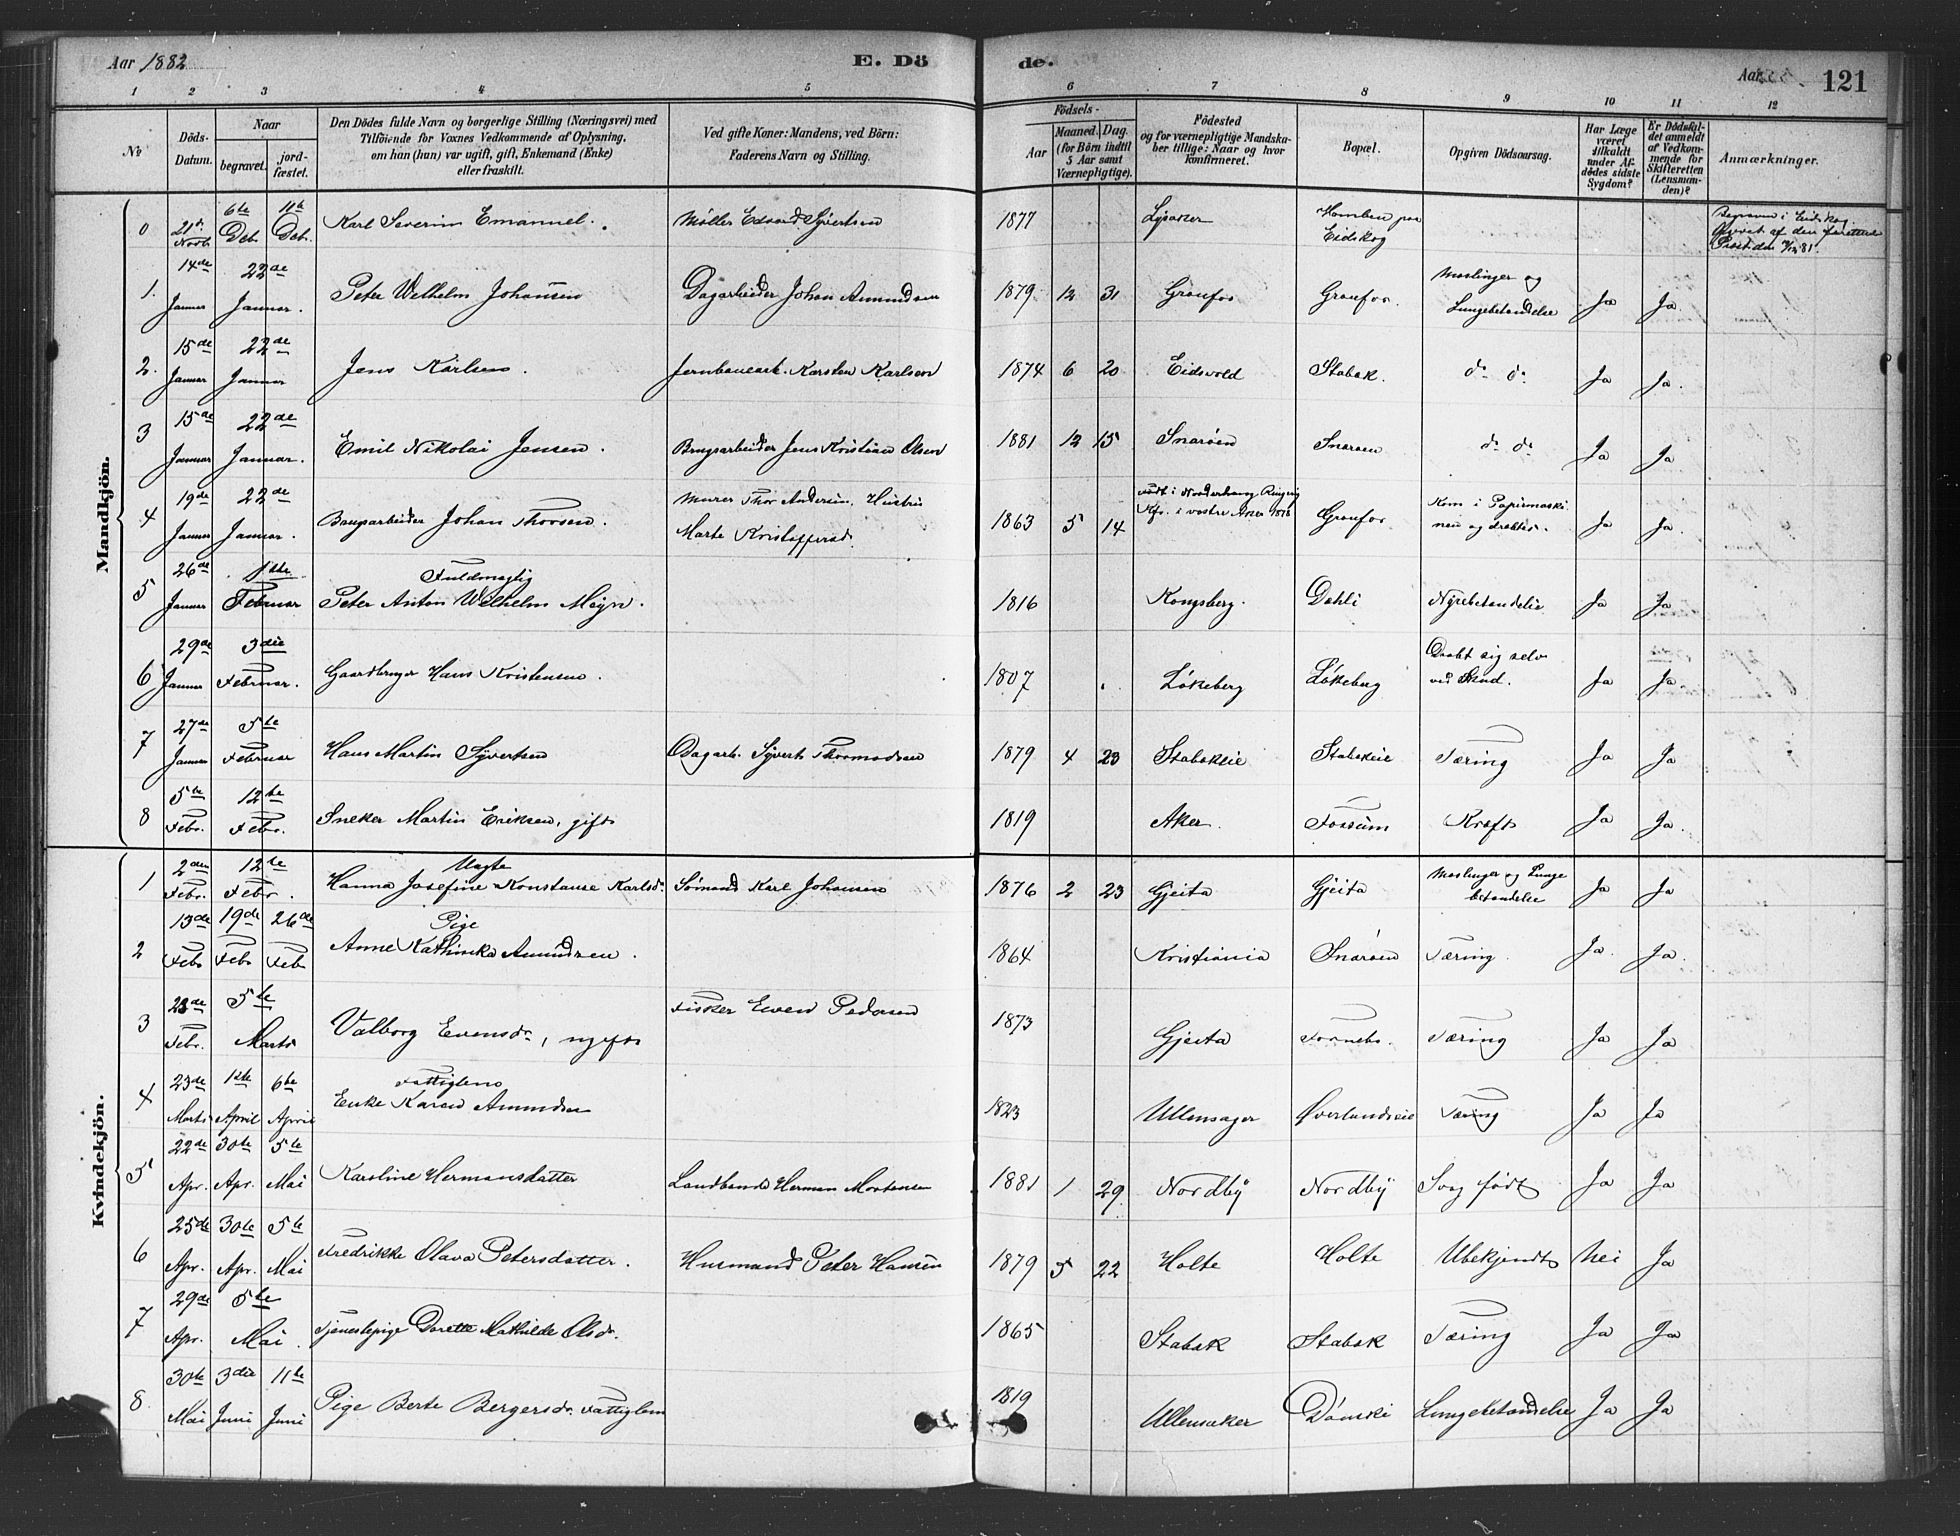 Aar 1882
E. Dö
de.
Aar
121
1 2 3 4 5 6 7 8 9 10 11 12
No
Döds-Datum.
Naar
begravet.
jord-fæstet.
Den Dödes fulde Navn og borgerlige Stilling (Næringsvei) med
Tilföiende for Voxnes Vedkommende af Oplysning,
om han (hun) var ugift, gift, Enkemand (Enke)
eller fraskilt.
Ved gifte Koner: Mandens, ved Börn:
Faderens Navn og Stilling.
Födsels-
Aar
Maaned. Dag.
(for Börn indtil
5 Aar samt
Værnepligtige).
Födested
og for værnepligtige Mandska-
ber tillige: Naar og hvor
konfirmeret.
Bopæl.
Opgiven Dödsaarsag.
Har Læge
været
tilkaldt
under Af-
dödes sidste
Sygdom?
Er Dödsfal-
det anmeldt
af Vedkom-
mende for
Skifteretten
(Lensman-
den)?
Anmærkninger.
Mandkjön.
0 21de Novb 6te Deb 11te Deb. Karl Severin Emanuel. Møller Edvard Syvertsen 1877 Lysaker Eidskog Begraven i Eidskog.
1. 14de Januar 22de Januar. Peter Welhelm Johansen Dagarbeider Johan Amundsen 1879 12 31 Granfos Granfos. Meslinger og Lungebetændelse Ja Ja
2. 15de Januar 22de Januar Jens Karlsen. Jernbanearb. Karsten Karlsen 1874 6 20 Eidsvold Stabæk. do do Ja Ja.
3 15de Januar 22de Januar. Emil Nikolai Jensen. Brugsarbeider Jens Kristian Olsen 1881 12 15 Snarøen Snarøen do do Ja Ja
4 19de Januar 22de Januar. Brugsarbeider Johan Thorsen. Murer Thor Andersen, Hustru Marte Kristoffersd. 1863 5 14 født i Norderhaug Ringerig Kfr. i vestre Aker 1878 Granfos Kom i Papirmaskinen og dræbtes. Ja Ja.
5 26de Januar 1ste Februar Fuldmægtig Peter Anton Welhelm Meyn. 1816 Kongsberg. Dahli Nyrebetændelse Ja Ja
6 29de Januar 3die Februar. Gaardbruger Hans Kristensen 1807 Løkeberg Løkeberg Dræbt sig selv ved Skud. Ja Ja
7 27de Januar 5te Februar Hans Martin Syvertsen Dagarb. Syvert Thormodsen 1879 4 23 Stabækeie Stabækeie Tæring Ja Ja
8 5te Febr. 12te Febr. Sneker Martin Eriksen, gift 1819 Aker. Fossum Kræft Ja Ja.
Kvindekjön.
1 2den Febr. 12te Febr. Ungte Hanna Josefine Konstanse Karlsd. Sømand Karl Johansen 1876 2 23 Gjeita Gjeita Meslinger og Lungebetændelse Ja Ja
2 13de Feb 19de Feb 26de Feb Pige Anne Kathinka Amundsen. 1864 Kristiania Snarøen Tæring. Ja. Ja.
3 23de Febr. 5te Marts Valborg Evensdr., ugift Fisker Even Pedersen 1873 Gjeita Fornebo. Tæring Ja Ja
4 23de Marts 1ste April 6te April Fattiglem Enke Karen Amundsen 1823 Ullensager Øverlandseie Tæring Ja Ja
5 22de Apr. 30te Apr. 5te Mai Karoline Hermansdatter Landhandl. Herman Mortensen 1881 1 29 Nordby Nordby Svag født Ja Ja
6 25de Apr. 30te Apr. 5te Mai Fredrikke Olava Petersdatter. Husmand Peter Hansen 1879 5 22 Holte Holte Ubekjendt Nei Ja
7 29de Apr. 5te Mai. Tjenestepige Dorette Mathilde Olsdr. 1865 Stabæk Stabæk Tæring Ja Ja
8. 30te Mai 3die Juni 11te Juni Pige Berte Bergersdr. Fattiglem 1819 Ullensaker Dønski Lungebetændelse Ja Ja